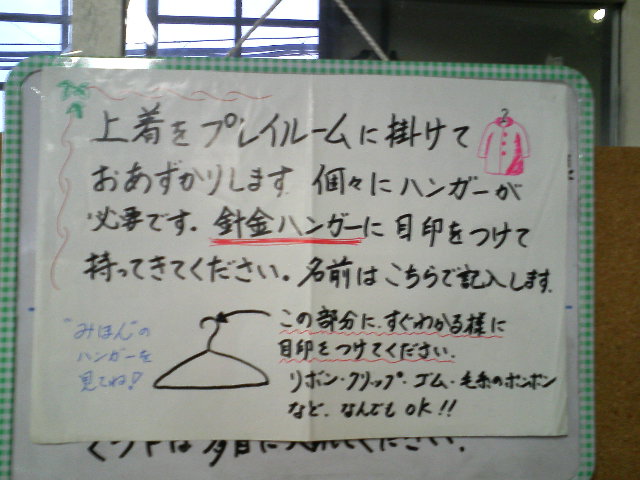 上着をプレイルームに掛けて
おあずかりします. 個々にハンガーが
必要です. 針金ハンガーに目印をつけて
持ってきてください。名前はこちらで記入します.
"みほん"の
ハンガーを
見てね!
この部分に、すぐわかる様に
目印をつけてください.
リボン・クリップ・ゴム・毛糸のボンボン
など、なんでもOK!!